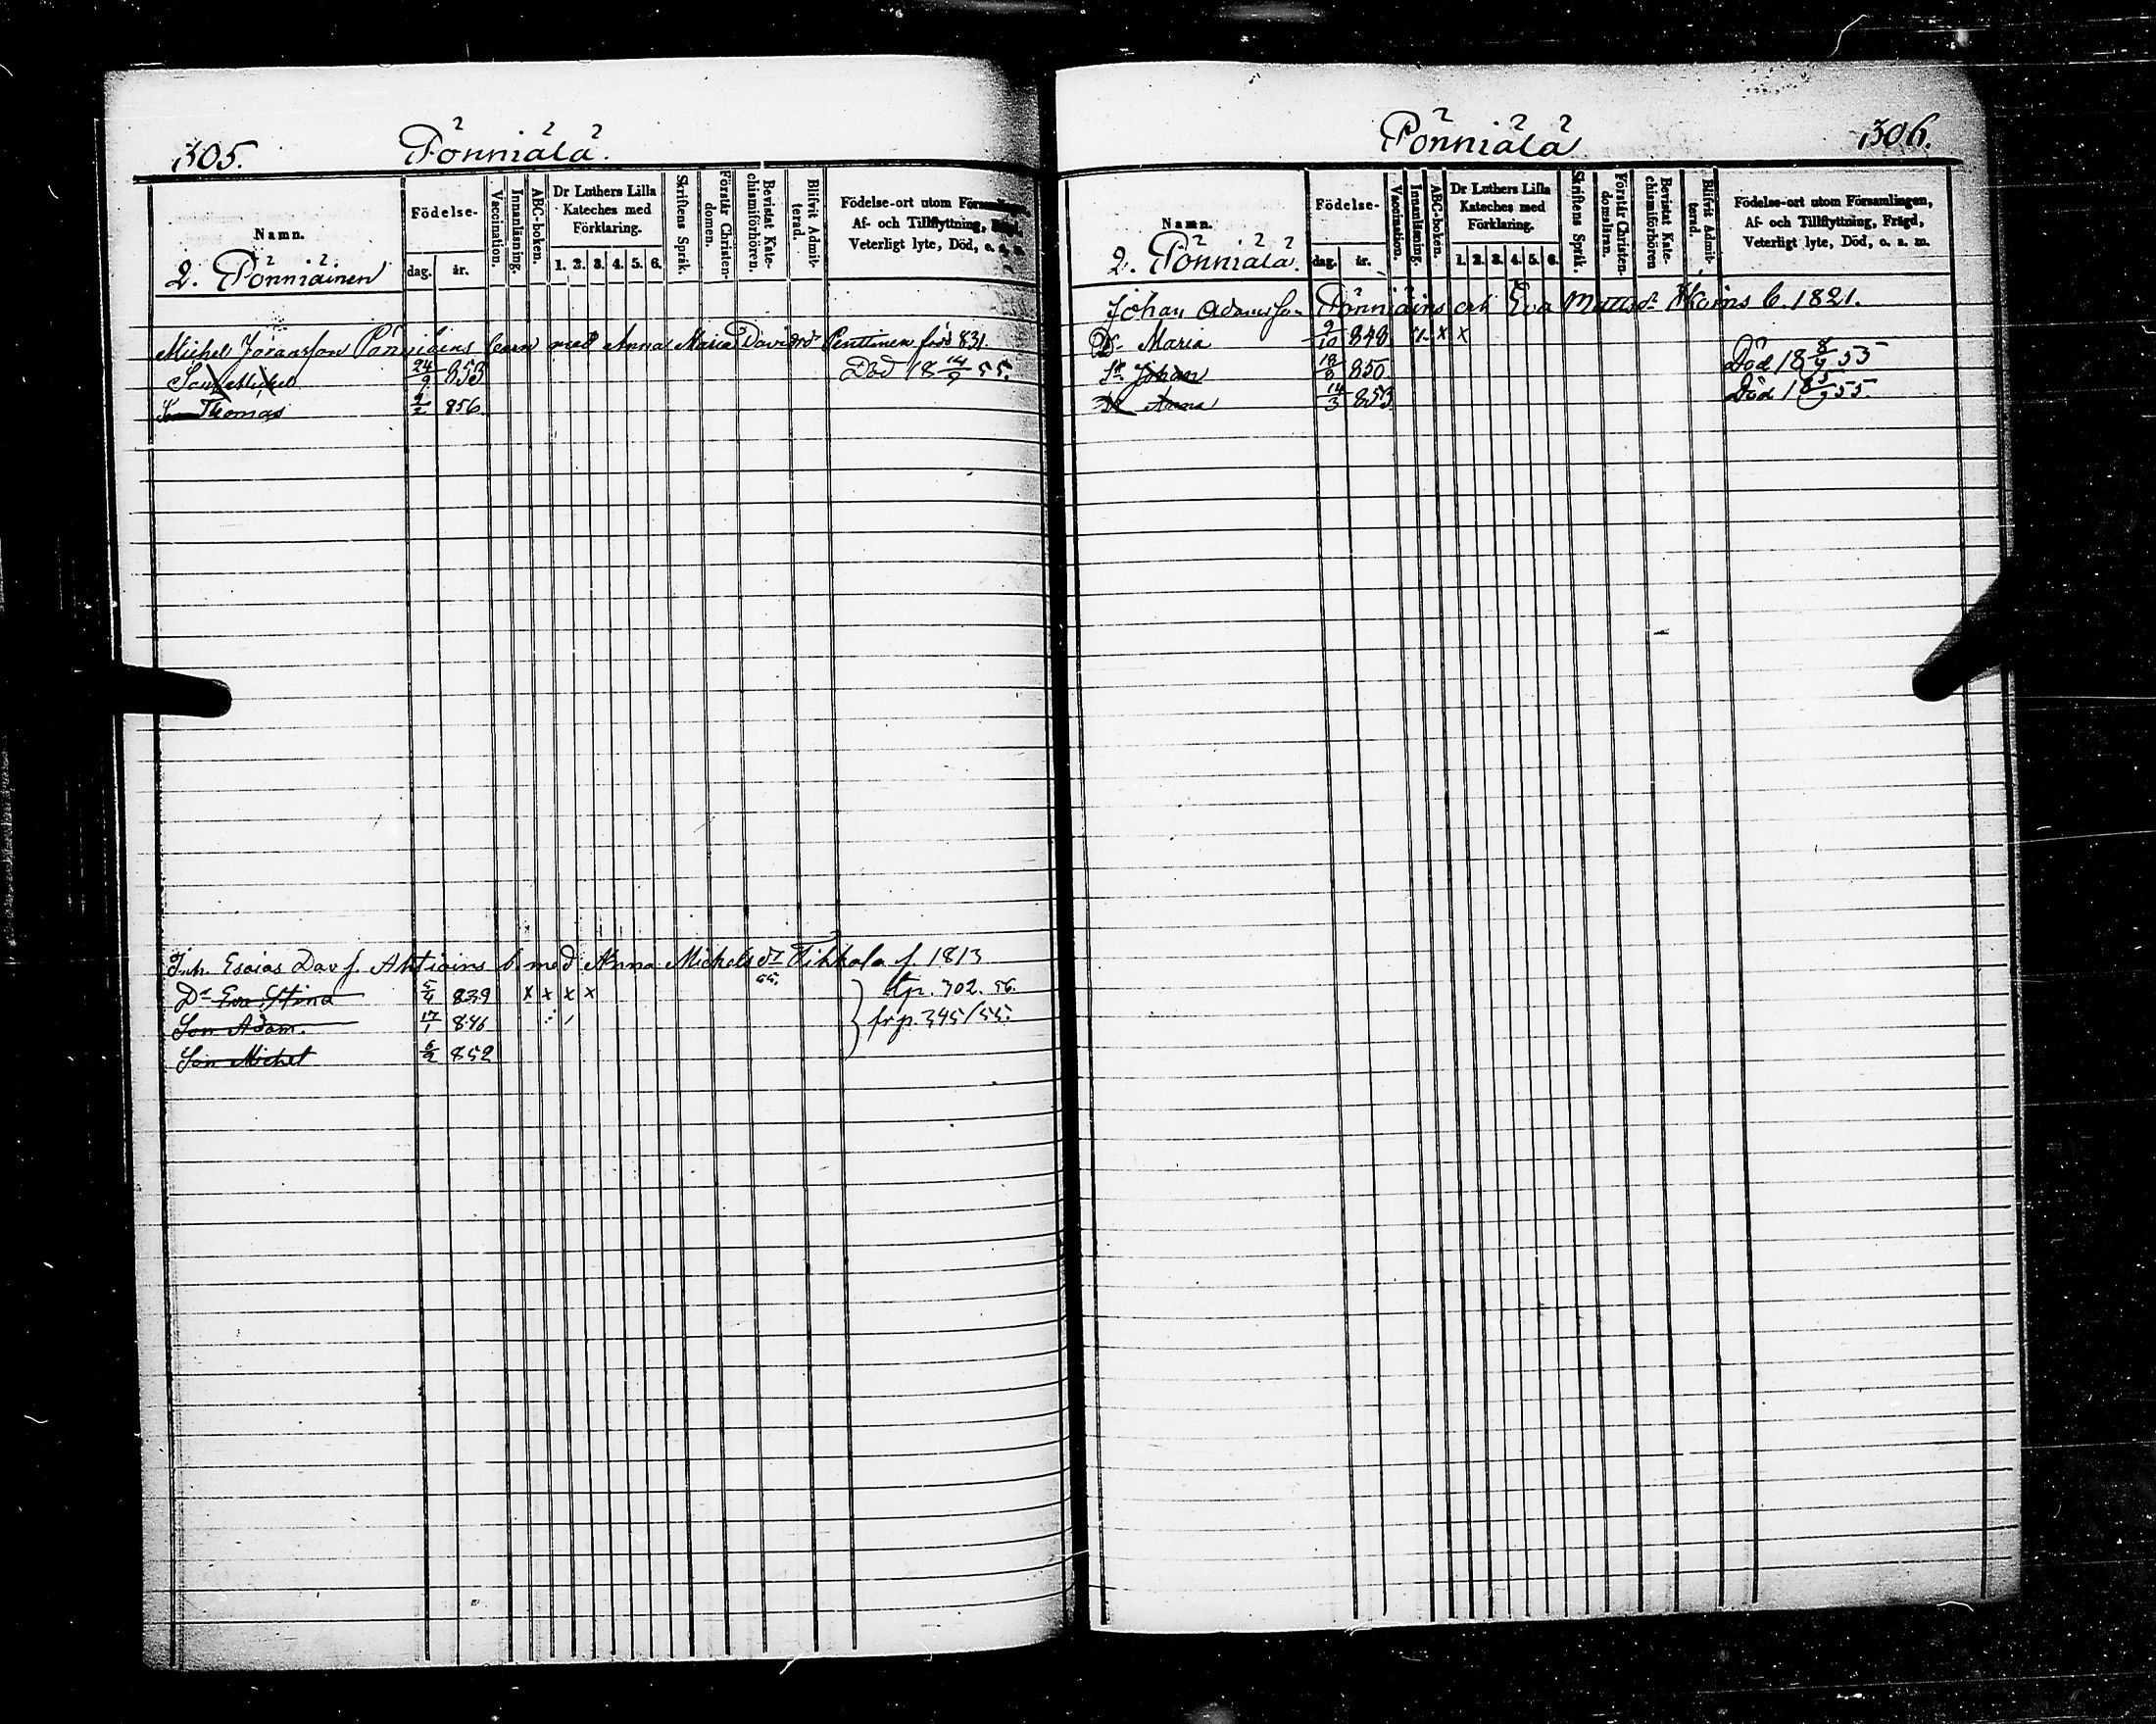 305. Pönniälä.
Namn.
Födelse-
dag. år.
Vaccination.
Innanläsning.
ABC-boken.
Dr Luthers Lilla
Kateches med
Förklaring.
1. 2. 3. 4. 5. 6.
Skriftens Språk.
Förstår Christen-
domen.
Bevistat Kate-
chismiförhören.
Blifvit Admit-
terad.
Födelse-ort utom Församlingen,
Af- och Tillflyttning,
Veterligt lyte, Död, o. s. m.
2. Pönniäinen
Michel Jöransson Pönniäins barn med Anna Maria Davidsdr Penttinen född 831.
Son Michel 24/9 853 Död 18 14/9 55.
Son Thomas 9/2 856
Inh. Esaias Dav.s. Ahtiains b. med Anna Michelsdr Tihkala f. 1813
Dr Eva Stina 5/4 839 x x x x tp. 302. 56.
Son Adam. 17/1 846 frp. 345/55.
Son Michel 6/2 852
Pönniälä 306.
Namn.
Födelse-
dag. år.
Vaccination.
Innanläsning.
ABC-boken.
Dr Luthers Lilla
Kateches med
Förklaring.
1. 2. 3. 4. 5. 6.
Skriftens Språk.
Förstår Christen-
domsläran.
Bevistat Kate-
chismiförhören
Blifvit Admit-
terad.
Födelse-ort utom Församlingen,
Af- och Tillflyttning, Frägd,
Veterligt lyte, Död, o. s. m.
2. Pönniälä.
Johan Adamsson Pönniäins och Eva Mattsdr b. 1821.
Dr Maria 9/10 848 x x
Sn Johan 18/8 850 Död 18 8/9 55
Dr Anna 14/3 853 Död 18 5/9 55.